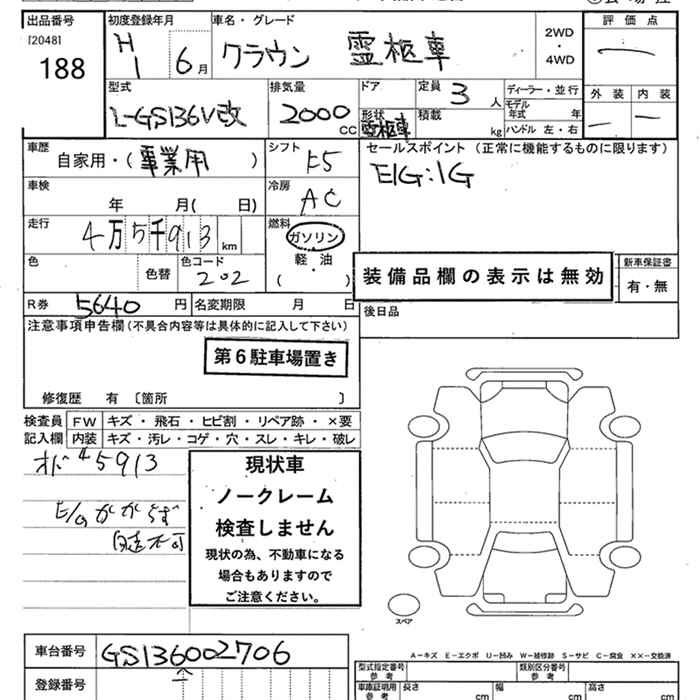 出品番号
[2048]
188
初度登録年月
H
1 6 月
車名・グレード
クラウン 霊柩車
2WD
・
4WD
評価点
型式
L-GS136V改
排気量
2000
CC
ドア
形状
霊柩車
定員
3
人
積載
kg
ディーラー・並行
モデル
年式 年
ハンドル 左・右
外装 内装
車歴
自家用・(事業用)
シフト
F5
セールスポイント (正常に機能するものに限ります)
E/G:1G
車検
年 月( 日)
冷房
AC
走行
4万5千913
km
燃料
ガソリン
軽・油
( )
色
色替
色コード
202
装備品欄の表示は無効
新車保証書
有・無
R券 5640 円
名変期限 月 日
後日品
注意事項申告欄(不具合内容等は具体的に記入して下さい)
第6駐車場置き
修復歴 有 〔箇所 〕
検査員
記入欄
FW キズ・飛石・ヒビ割・リペア跡・×要
内装 キズ・汚レ・コゲ・穴・スレ・キレ・破レ
オド 45913
E/Gかからず
自走不可
現状車
ノークレーム
検査しません
現状の為、不動車になる
場合もありますので
ご注意ください。
スペア
A-キズ E-エクボ U-凹み W-補修跡 S-サビ C-腐食 ××-交換済
車台番号 GS136002706
登録番号
型式指定番号
参考
類別区分番号
参考
車庫証明用
参考
長さ cm
幅 cm
高さ cm